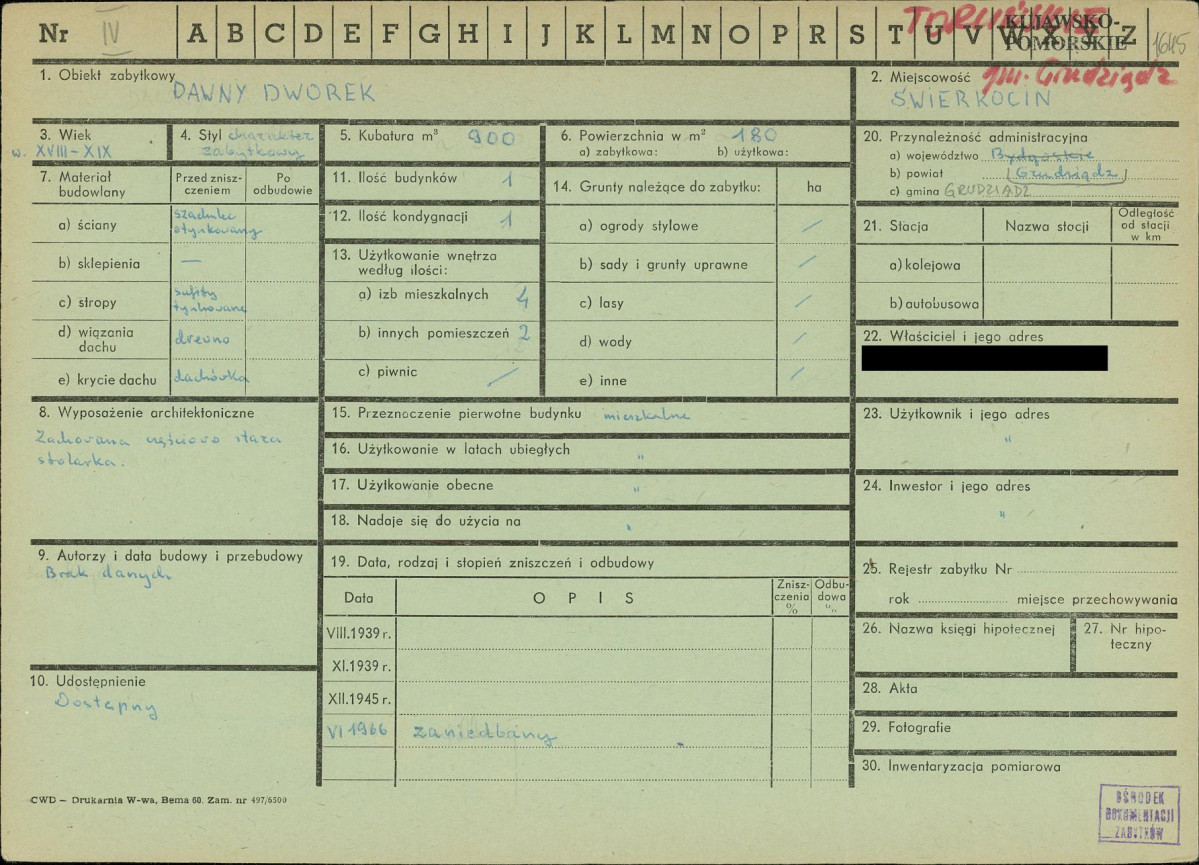 Nr IV A B C D E F G H I J K L M N O P R S T U V W X Y Z
TORUŃSKIE
KUJAWSKO-
POMORSKIE
1645
1. Obiekt zabytkowy
DAWNY DWOREK
2. Miejscowość gm. Grudziądz
ŚWIERKOCIN
3. Wiek
w. XVIII-XIX
4. Styl charakter
zabytkowy
5. Kubatura m³ 900
6. Powierzchnia w m² 180
a) zabytkowa: b) użytkowa:
20. Przynależność administracyjna
a) województwo Bydgoskie
b) powiat (Grudziądz)
c) gmina GRUDZIĄDZ
7. Materiał
budowlany
Przed znisz-
czeniem
Po
odbudowie
a) ściany szachulec
otynkowany
b) sklepienia —
c) stropy sufity
tynkowane
d) wiązania
dachu drewno
e) krycie dachu dachówka
11. Ilość budynków 1
12. Ilość kondygnacji 1
13. Użytkowanie wnętrza
według ilości:
a) izb mieszkalnych 4
b) innych pomieszczeń 2
c) piwnic /
14. Grunty należące do zabytku: ha
a) ogrody stylowe /
b) sady i grunty uprawne /
c) lasy /
d) wody /
e) inne /
21. Stacja Nazwa stacji
Odległość
od stacji
w km
a) kolejowa
b) autobusowa
22. Właściciel i jego adres
8. Wyposażenie architektoniczne
Zachowana częściowo stara
stolarka.
15. Przeznaczenie pierwotne budynku mieszkalne
16. Użytkowanie w latach ubiegłych "
17. Użytkowanie obecne "
18. Nadaje się do użycia na "
23. Użytkownik i jego adres
"
24. Inwestor i jego adres
"
9. Autorzy i data budowy i przebudowy
Brak danych
19. Data, rodzaj i stopień zniszczeń i odbudowy
Data OPIS
Znisz-
czenia
%
Odbu-
dowa
%
VIII.1939 r.
XI.1939 r.
XII.1945 r.
VI 1966 zaniedbany
25. Rejestr zabytku Nr
rok miejsce przechowywania
26. Nazwa księgi hipotecznej
27. Nr hipo-
teczny
10. Udostępnienie
Dostępny
28. Akta
29. Fotografie
30. Inwentaryzacja pomiarowa
CWD – Drukarnia W-wa, Bema 60. Zam. nr 497/6500
OŚRODEK
DOKUMENTACJI
ZABYTKÓW